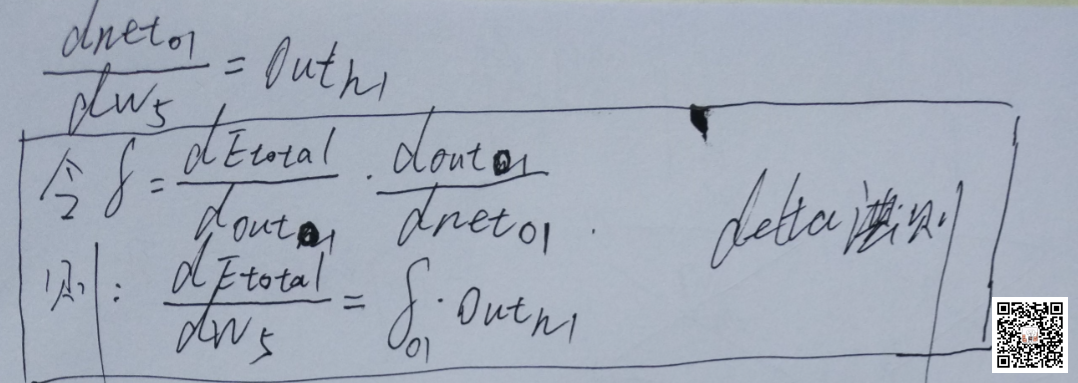 dnet₀₁/dw₅ = out_h1
令 δ = dEtotal/dout₀₁ · dout₀₁/dnet₀₁ . delta
则: dEtotal/dw₅ = δ₀₁ · out_h1